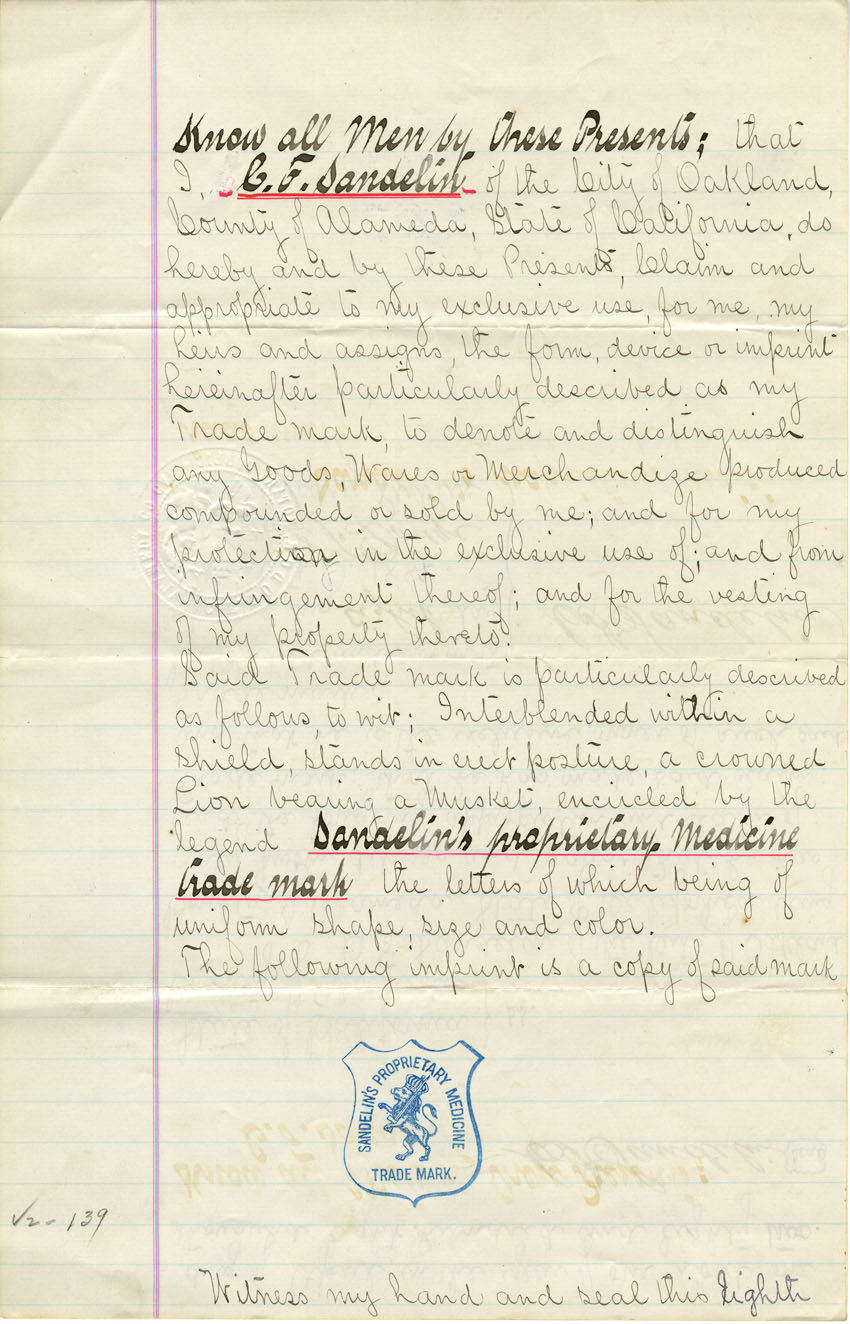 Know all Men by these Presents; that
I, C. F. Sandelin of the City of Oakland,
County of Alameda, State of California, do
hereby and by these Presents, Claim and
appropriate to my exclusive use, for me, my
heirs and assigns, the form, device or imprint
hereinafter particularly described as my
Trade mark, to denote and distinguish
any Goods, Wares or Merchandize produced
compounded or sold by me; and for my
protection in the exclusive use of; and from
infringement thereof; and for the vesting
of my property thereto.
Said Trade mark is particularly described
as follows, to wit; Interblended within a
shield, stands in erect posture, a crowned
Lion bearing a Musket, encircled by the
legend Sandelin's proprietary Medicine
trade mark the letters of which being of
uniform shape, size and color.
The following imprint is a copy of said mark
SANDELIN'S PROPRIETARY MEDICINE
TRADE MARK.
139
Witness my hand and seal this Eighth